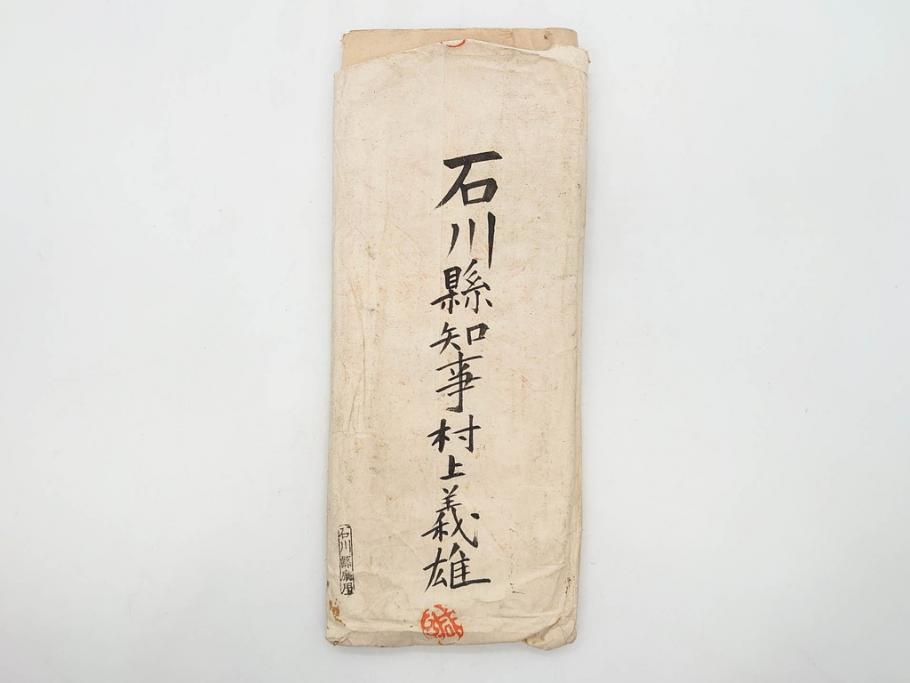 石川縣知事村上義雄
石川縣廳用